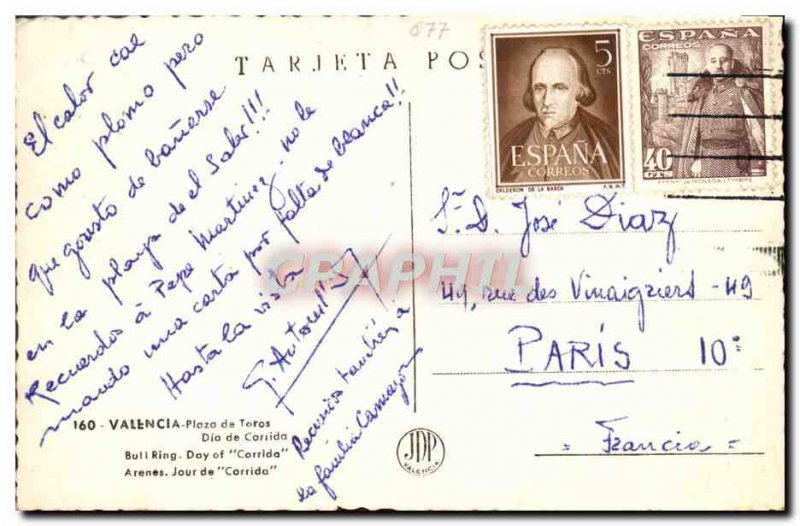 077
TARJETA POS
El calor cae
como plomo pero
que gousto de bañerse
en la playa de el Saler!!!
Recuerdos à Pepe Martinez. no le
mando una carta por falta de blanca!!
Hasta la vista
Recuerdos tambien à
la familia
160 - VALENCIA - Plaza de Toros
Día de Corrida
Bull Ring. Day of "Corrida"
Arenes. Jour de "Corrida"
JDP
VALENCIA
5
CTS
ESPAÑA
CORREOS
CALDERON DE LA BARCA
ESPAÑA
CORREOS
40
CTS
Sr. D. José Diaz
49, rue des Vinaigriers - 49
PARÍS 10e
= Francia =
CPAPHIL